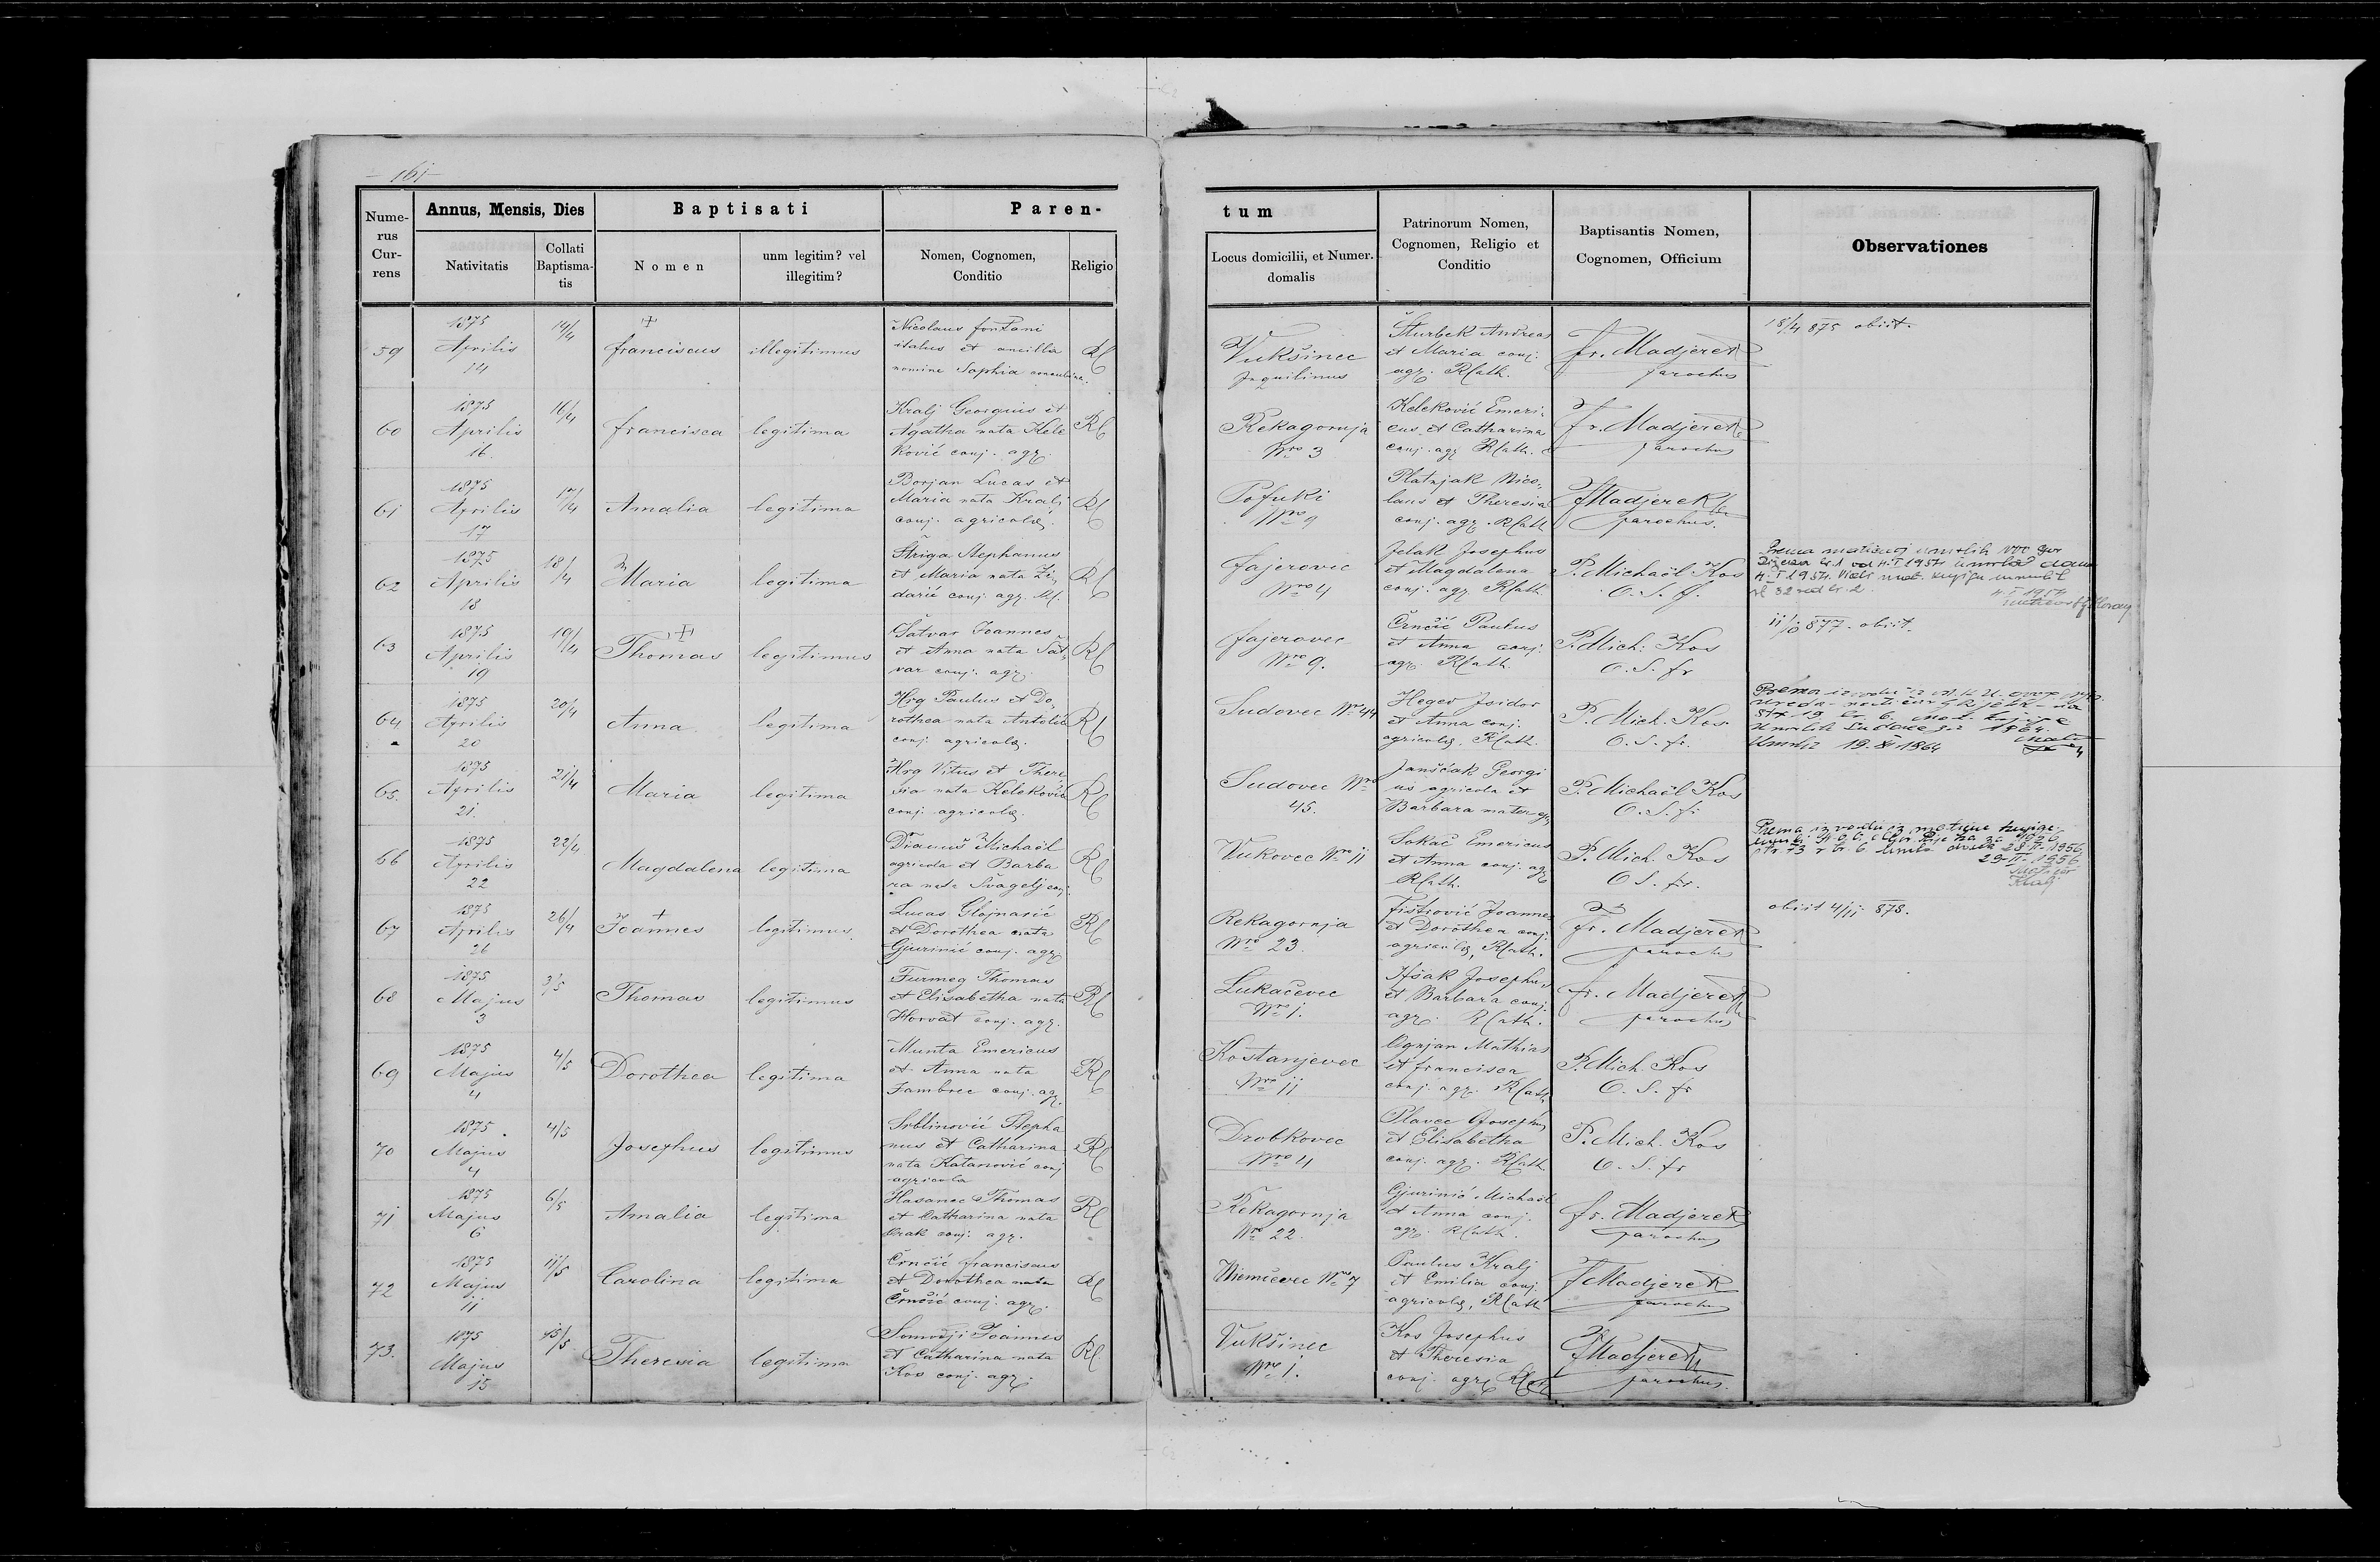 - 161 -
Nume-
rus
Cur-
rens
Annus, Mensis, Dies
Nativitatis
Collati
Baptisma-
tis
Baptisati
Nomen
num legitim? vel
illegitim?
Paren-
Nomen, Cognomen,
Conditio
Religio
tum
Locus domicilii, et Numer.
domalis
Patrinorum Nomen,
Cognomen, Religio et
Conditio
Baptisantis Nomen,
Cognomen, Officium
Observationes
59
1875
Aprilis
14
14/4
Franciscus
illegitimus
Nicolaus Fontani
italus et ancilla
nomine Sophia concubinæ.
RC
Vukšinec
Inquilinus
Šturbek Andreas
et Maria conj.
agr. RCath.
Fr. Madjerek
parochus
18/4 875 obiit.
60
1875
Aprilis
16.
16/4
Francisca
legitima
Kralj Georgius et
Agatha nata Kele
ković conj. agr.
RC
Rekagornja
Nro 3
Keleković Emeri-
cus et Catharina
conj. agr. RCath.
Fr. Madjerek
parochus
61
1875
Aprilis
17
17/4
Amalia
legitima
Borjan Lucas et
Maria nata Kralj
conj. agricolæ.
RC
Pofuki
Nro 9
Platnjak Nico-
laus et Theresia
conj. agr. RCath
F Madjerek
parochus.
62
1875
Aprilis
18
18/4
Maria
legitima
Štriga Stephanus
et Maria nataŽi-
darić conj. agr.
RC
Fajerovec
Nro 4
Jelak Josephus
et Magdalena
conj. agr. RCath
P. Michaël Kos
O. S. f.
Prema matičnoj umrlih
br. 1 od 4. I 1954 umrla dana
4. I 1954.
63
1875
Aprilis
19
19/4
Thomas
legitimus
Šatvar Joannes
et Anna nata Šat-
var conj. agr.
RC
Fajerovec
Nro 9.
Črnčić Paulus
et Anna conj.
agr. RCath.
P. Mich. Kos
O. S. fr
11/10 877. obiit.
64
1875
Aprilis
20
20/4
Anna
legitima
Hrg Paulus et Do-
rothea nata Antolić
conj. agricolæ.
RC
Sudovec Nro 44
Heged Isidor
et Anna conj.
agricolæ, RCath.
P. Mich. Kos
O. S. fr.
Prema
1964.
65.
1875
Aprilis
21.
21/4
Maria
legitima
Hrg Vitus et There
sia nata Keleković
conj. agricolæ.
RC
Sudovec Nro
45.
Janščak Georgi
us agricola et
Barbara mater
P. Michaël Kos
O. S. fr
66
1875
Aprilis
22
22/4
Magdalena
legitima
Dianuš Michaël
agricola et Barba
ra nata Švagelj conj.
RC
Vukovec Nro 11
Sokač Emericus
et Anna conj. agr
RCath.
P. Mich. Kos
O S. fr.
Prema izvodu iz matične knjige
28-II-1956
29-II-1956
Matičar
Kralj
67
1875
Aprilis
26
26/4
Joannes
legitimus
Lucas Glojnarić
et Dorothea nata
Gjurinić conj. agr
RC
Rekagornja
Nro 23
Fistrović Joannes
et Dorothea conj
agricolæ, RCath.
Fr. Madjerek
obiit 4/11 878.
68
1875
Majus
3
3/5
Thomas
legitimus
Furmeg Thomas
et Elisabetha nata
Horvat conj. agr.
RC
Lukačevec
Nro 1.
Josephus
et Barbara conj
agr. RCath.
Fr. Madjerek
parochus
69
1875
Majus
4
4/5
Dorothea
legitima
Munta Emericus
et Anna nata
Jambrec conj. agr.
RC
Kostanjevec
Nro 11
Ognjan Mathias
et Francisca
conj. agr. RCath
P. Mich. Kos
O. S. fr
70
1875
Majus
4
4/5
Josephus
legitimus
Srblinović Stepha
nus et Catharina
nata Katanović conj
agricola
RC
Drobkovec
Nro 4
Plavec Josephus
et Elisabetha
conj. agr. RCath
P. Mich. Kos
O. S. fr
71
1875
Majus
6
6/5
Amalia
legitima
Hasanec Thomas
et Catharina nata
conj. agr.
RC
Rekagornja
Nro 22.
Gjurinić Michaël
et Anna conj.
agr. RCath.
Fr. Madjerek
parochus
72
1875
Majus
11
11/5
Carolina
legitima
Črnčić Franciscus
et Dorothea nata
Črnčić conj. agr.
RC
Niemčevec Nro 7
Paulus Kralj
et Emilia conj.
agricolæ, RCath
F Madjerek
parochus
73.
1875
Majus
15
15/5
Theresia
legitima
Somodji Joannes
et Catharina nata
Kos conj. agr.
RC
Vukšinec
Nro 1.
Kos Josephus
et Theresia
conj. agr RCath
F Madjerek
parochus.